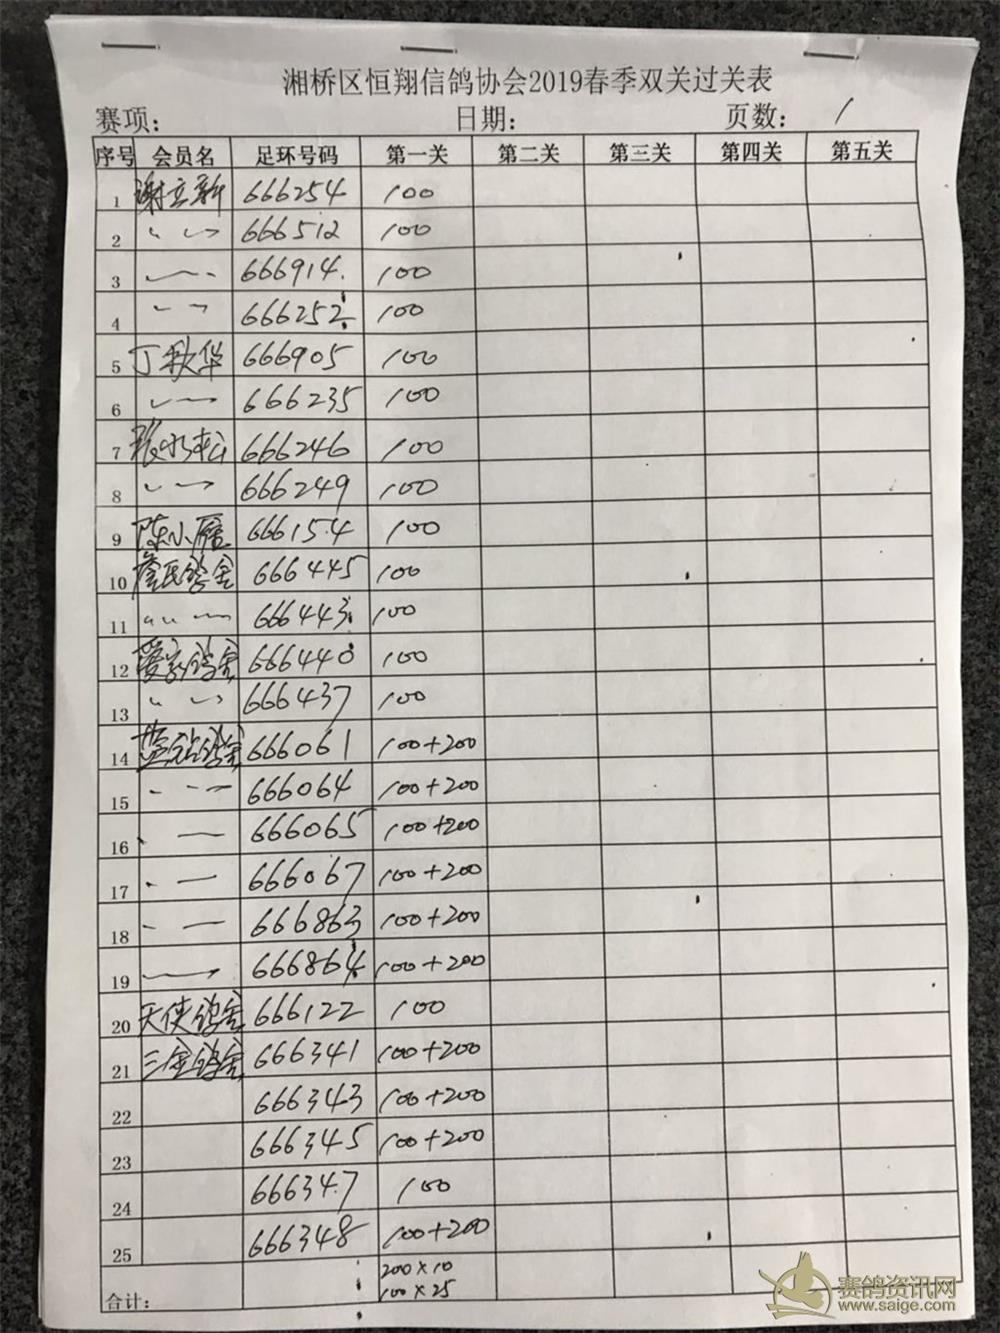 湘桥区恒翔信鸽协会2019春季双关过关表
赛项: 日期: 页数: 1
序号 会员名 足环号码 第一关 第二关 第三关 第四关 第五关
1 谢立新 666254 100
2 〃 〃 666512 100
3 666914 100
4 〃 〃 666252 100
5 丁秋华 666905 100
6 666235 100
7 张水松 666246 100
8 666249 100
9 陈小雁 666154 100
10 詹民鸽舍 666445 100
11 666443 100
12 爱家鸽舍 666440 100
13 〃 〃 666437 100
14 鸽舍 666061 100+200
15 666064 100+200
16 666065 100+200
17 666067 100+200
18 666863 100+200
19 666864 100+200
20 天使鸽舍 666122 100
21 三金鸽舍 666341 100+200
22 666343 100+200
23 666345 100+200
24 666347 100
25 666348 100+200
合计: 200×10
100×25
赛鸽资讯网
www.saige.com